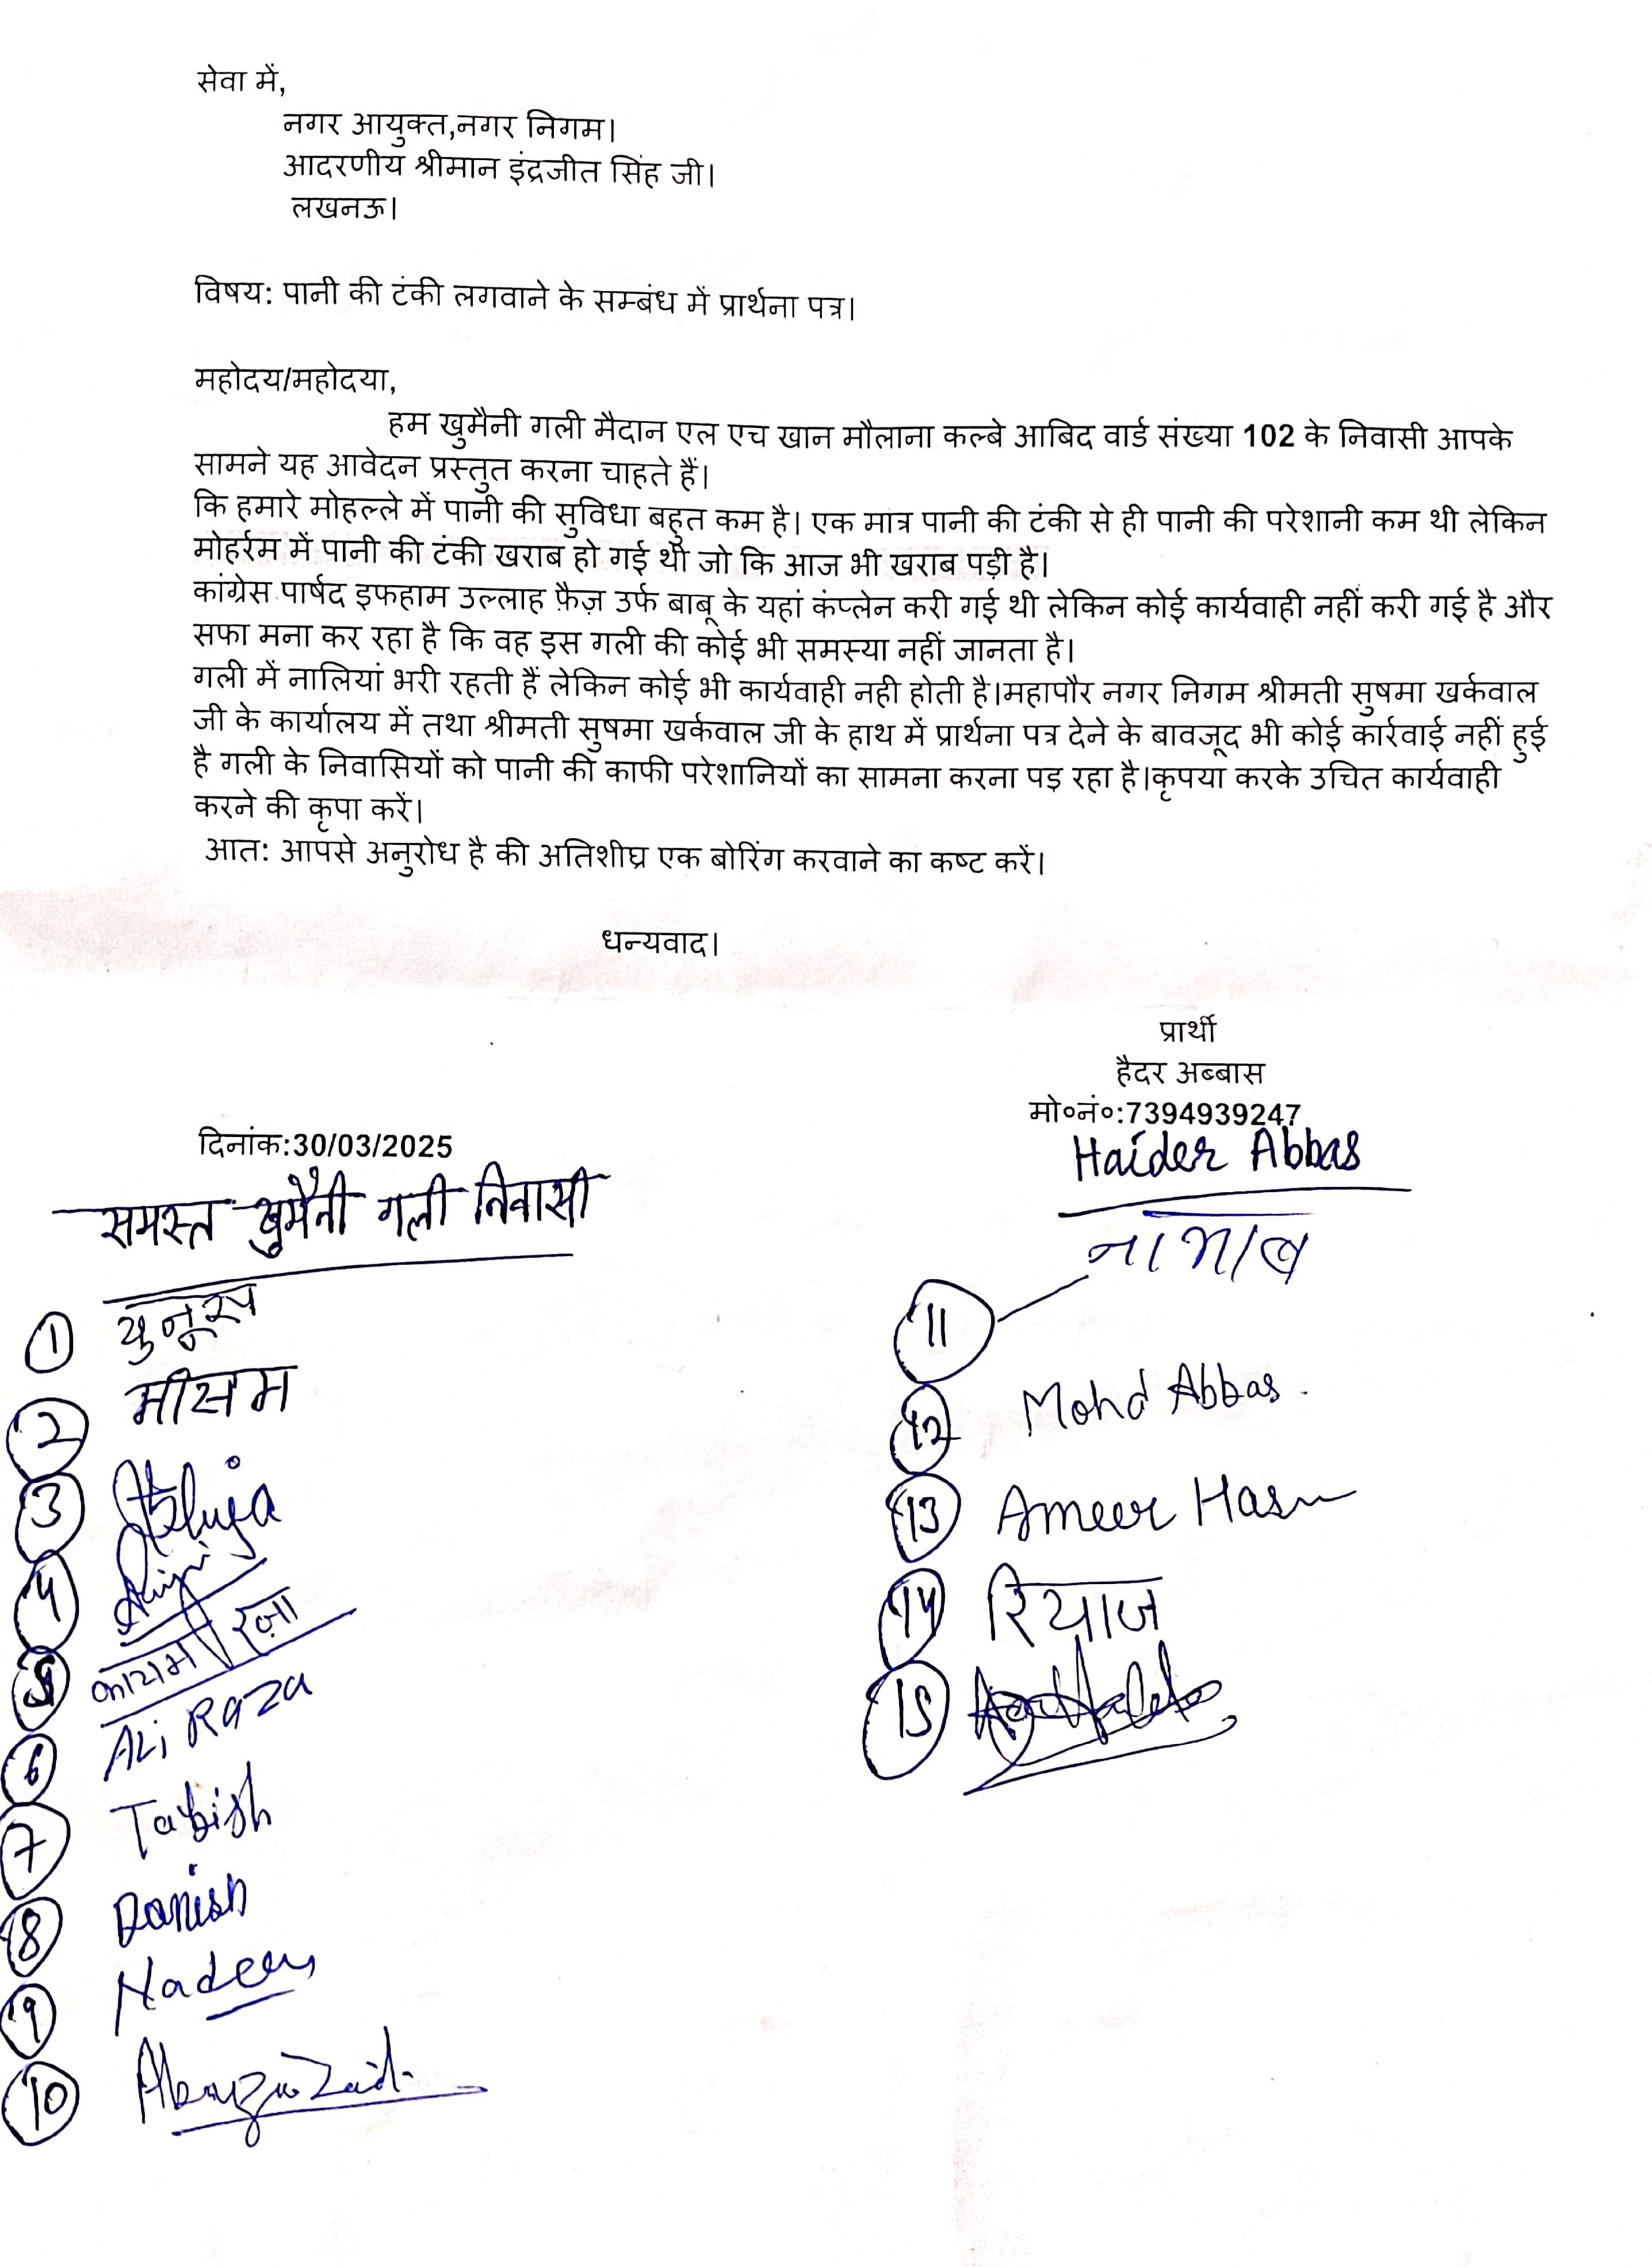 सेवा में,
नगर आयुक्त,नगर निगम।
आदरणीय श्रीमान इंद्रजीत सिंह जी।
लखनऊ।
विषय: पानी की टंकी लगवाने के सम्बंध में प्रार्थना पत्र।
महोदय/महोदया,
हम खुमैनी गली मैदान एल एच खान मौलाना कल्बे आबिद वार्ड संख्या 102 के निवासी आपके
सामने यह आवेदन प्रस्तुत करना चाहते हैं।
कि हमारे मोहल्ले में पानी की सुविधा बहुत कम है। एक मात्र पानी की टंकी से ही पानी की परेशानी कम थी लेकिन
मोहर्रम में पानी की टंकी खराब हो गई थी जो कि आज भी खराब पड़ी है।
कांग्रेस पार्षद इफहाम उल्लाह फ़ैज़ उर्फ बाबू के यहां कंप्लेन करी गई थी लेकिन कोई कार्यवाही नहीं करी गई है और
सफा मना कर रहा है कि वह इस गली की कोई भी समस्या नहीं जानता है।
गली में नालियां भरी रहती हैं लेकिन कोई भी कार्यवाही नही होती है।महापौर नगर निगम श्रीमती सुषमा खर्कवाल
जी के कार्यालय में तथा श्रीमती सुषमा खर्कवाल जी के हाथ में प्रार्थना पत्र देने के बावजूद भी कोई कार्रवाई नहीं हुई
है गली के निवासियों को पानी की काफी परेशानियों का सामना करना पड़ रहा है।कृपया करके उचित कार्यवाही
करने की कृपा करें।
आत: आपसे अनुरोध है की अतिशीघ्र एक बोरिंग करवाने का कष्ट करें।
धन्यवाद।
प्रार्थी
हैदर अब्बास
मो०नं०:7394939247
Haider Abbas
दिनांक:30/03/2025
समस्त खुमैनी गली निवासी
1 युनूस
2 मीसम
3
4
5 कायम रज़ा
6 ALi Raza
7 Tabish
8 Danish
9 Nadeem
10
11
12 Mohd Abbas.
13 Ameer Hasn
14 रियाज
15